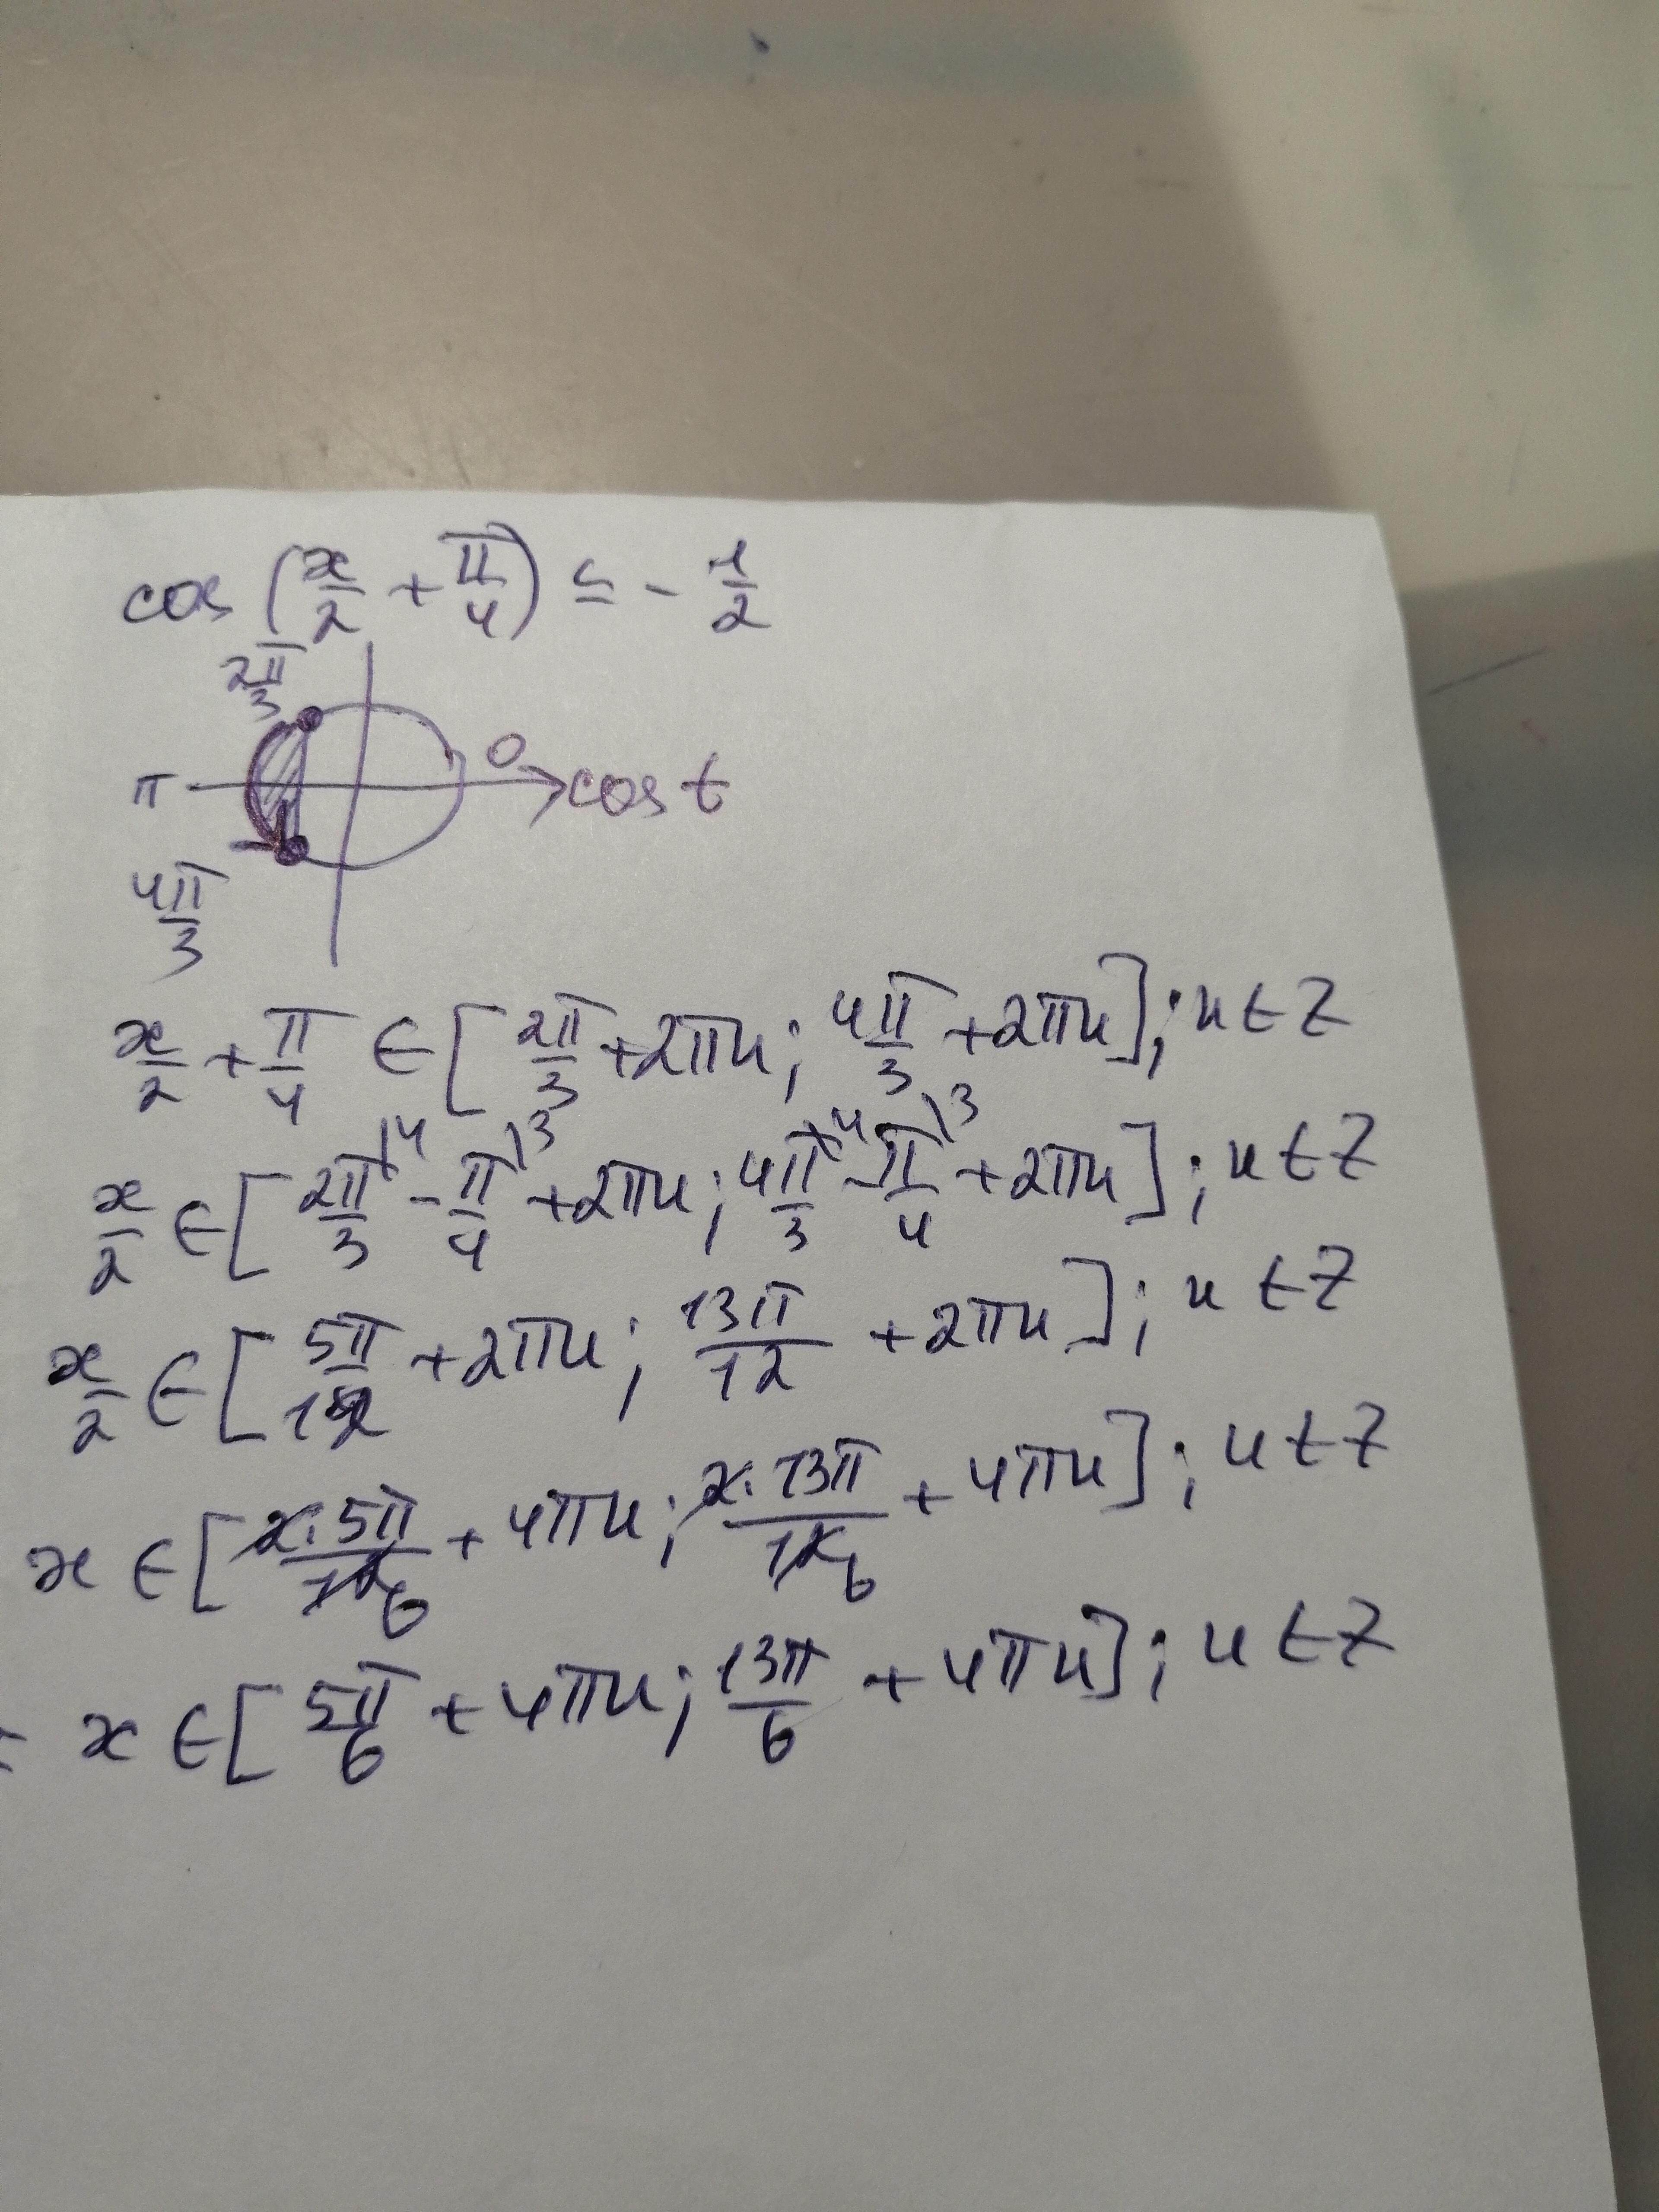 cos (x/2 + π/4) ≤ - 1/2
2π/3
π 0 cos t
4π/3
x/2 + π/4 ∈ [2π/3 + 2πn; 4π/3 + 2πn]; n ∈ Z
x/2 ∈ [2π/3 \4 - π/4 \3 + 2πn; 4π/3 \4 - π/4 \3 + 2πn]; n ∈ Z
x/2 ∈ [5π/12 + 2πn; 13π/12 + 2πn]; n ∈ Z
x ∈ [2·5π/12 6 + 4πn; 2·13π/12 6 + 4πn]; n ∈ Z
= x ∈ [5π/6 + 4πn; 13π/6 + 4πn]; n ∈ Z